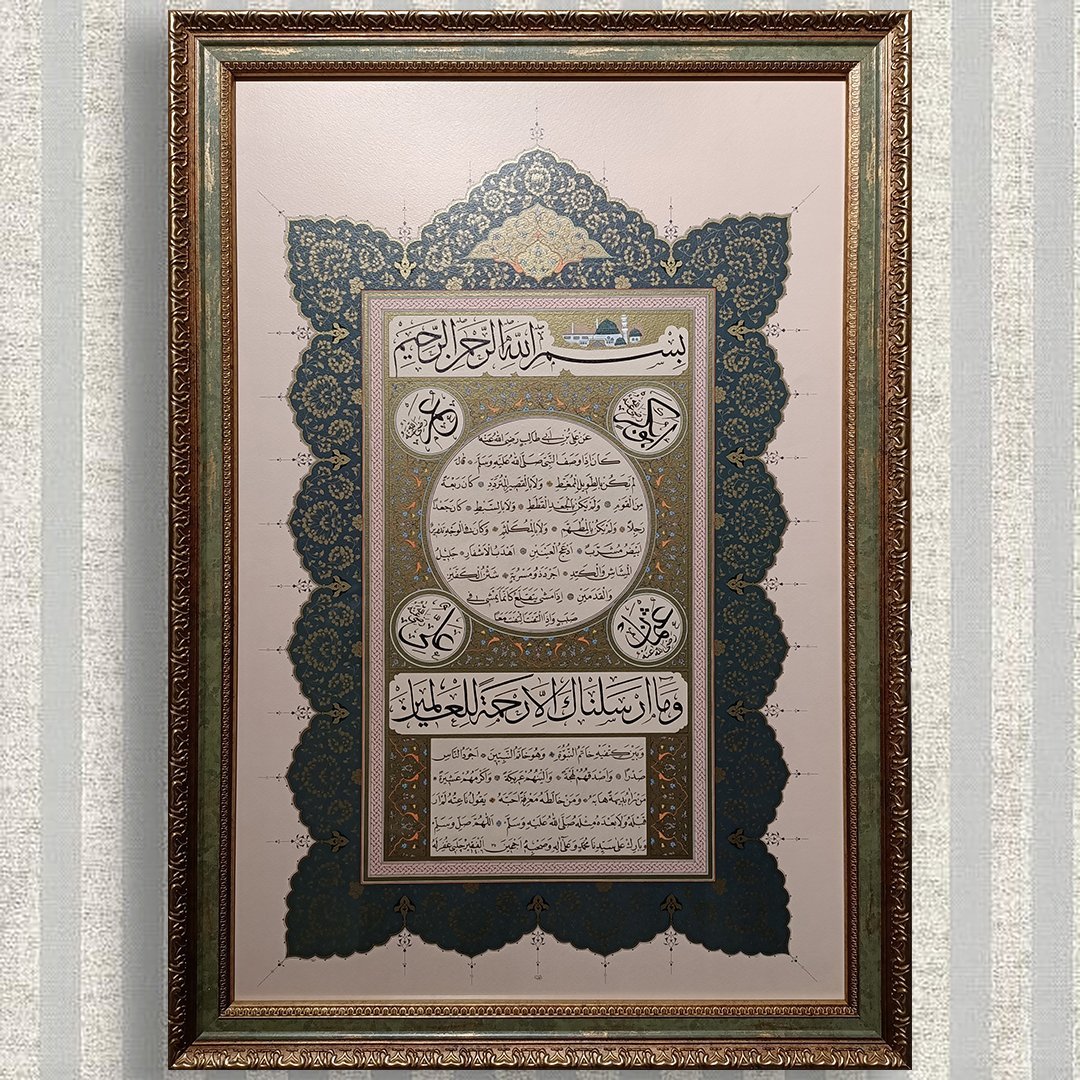 بِسْمِ اللهِ الرَّحْمٰنِ الرَّحِيمِ
أبو بكر رضي الله عنه
عمر رضي الله عنه
عن علي بن أبي طالب رضي الله عنه
كان إذا وصف النبي صلى الله عليه وسلم * قال
لم يكن بالطويل الممغط * ولا بالقصير المتردد * كان ربعة
من القوم * ولم يكن بالجعد القطط * ولا بالسبط * كان جعدا
رجلا * ولم يكن بالمطهم * ولا بالمكلثم * وكان في الوجه تدوير
أبيض مشرب * أدعج العينين * أهدب الأشفار * جليل
المشاش والكتد * أجرد ذو مسربة * شثن الكفين
والقدمين * إذا مشى يتقلع كأنما يمشي في
صبب وإذا التفت التفت معا
عثمان رضي الله عنه
علي رضي الله عنه
وَمَا أَرْسَلْنَاكَ إِلَّا رَحْمَةً لِلْعَالَمِينَ
وبين كتفيه خاتم النبوة * وهو خاتم النبيين * أجود الناس
صدرا * وأصدقهم لهجة * وألينهم عريكة * وأكرمهم عشيرة *
من رآه بديهة هابه * ومن خالطه معرفة أحبه * يقول ناعته لم أر
قبله ولا بعده مثله صلى الله عليه وسلم * اللهم صل وسلم
وبارك على سيدنا محمد وعلى آله وصحبه أجمعين